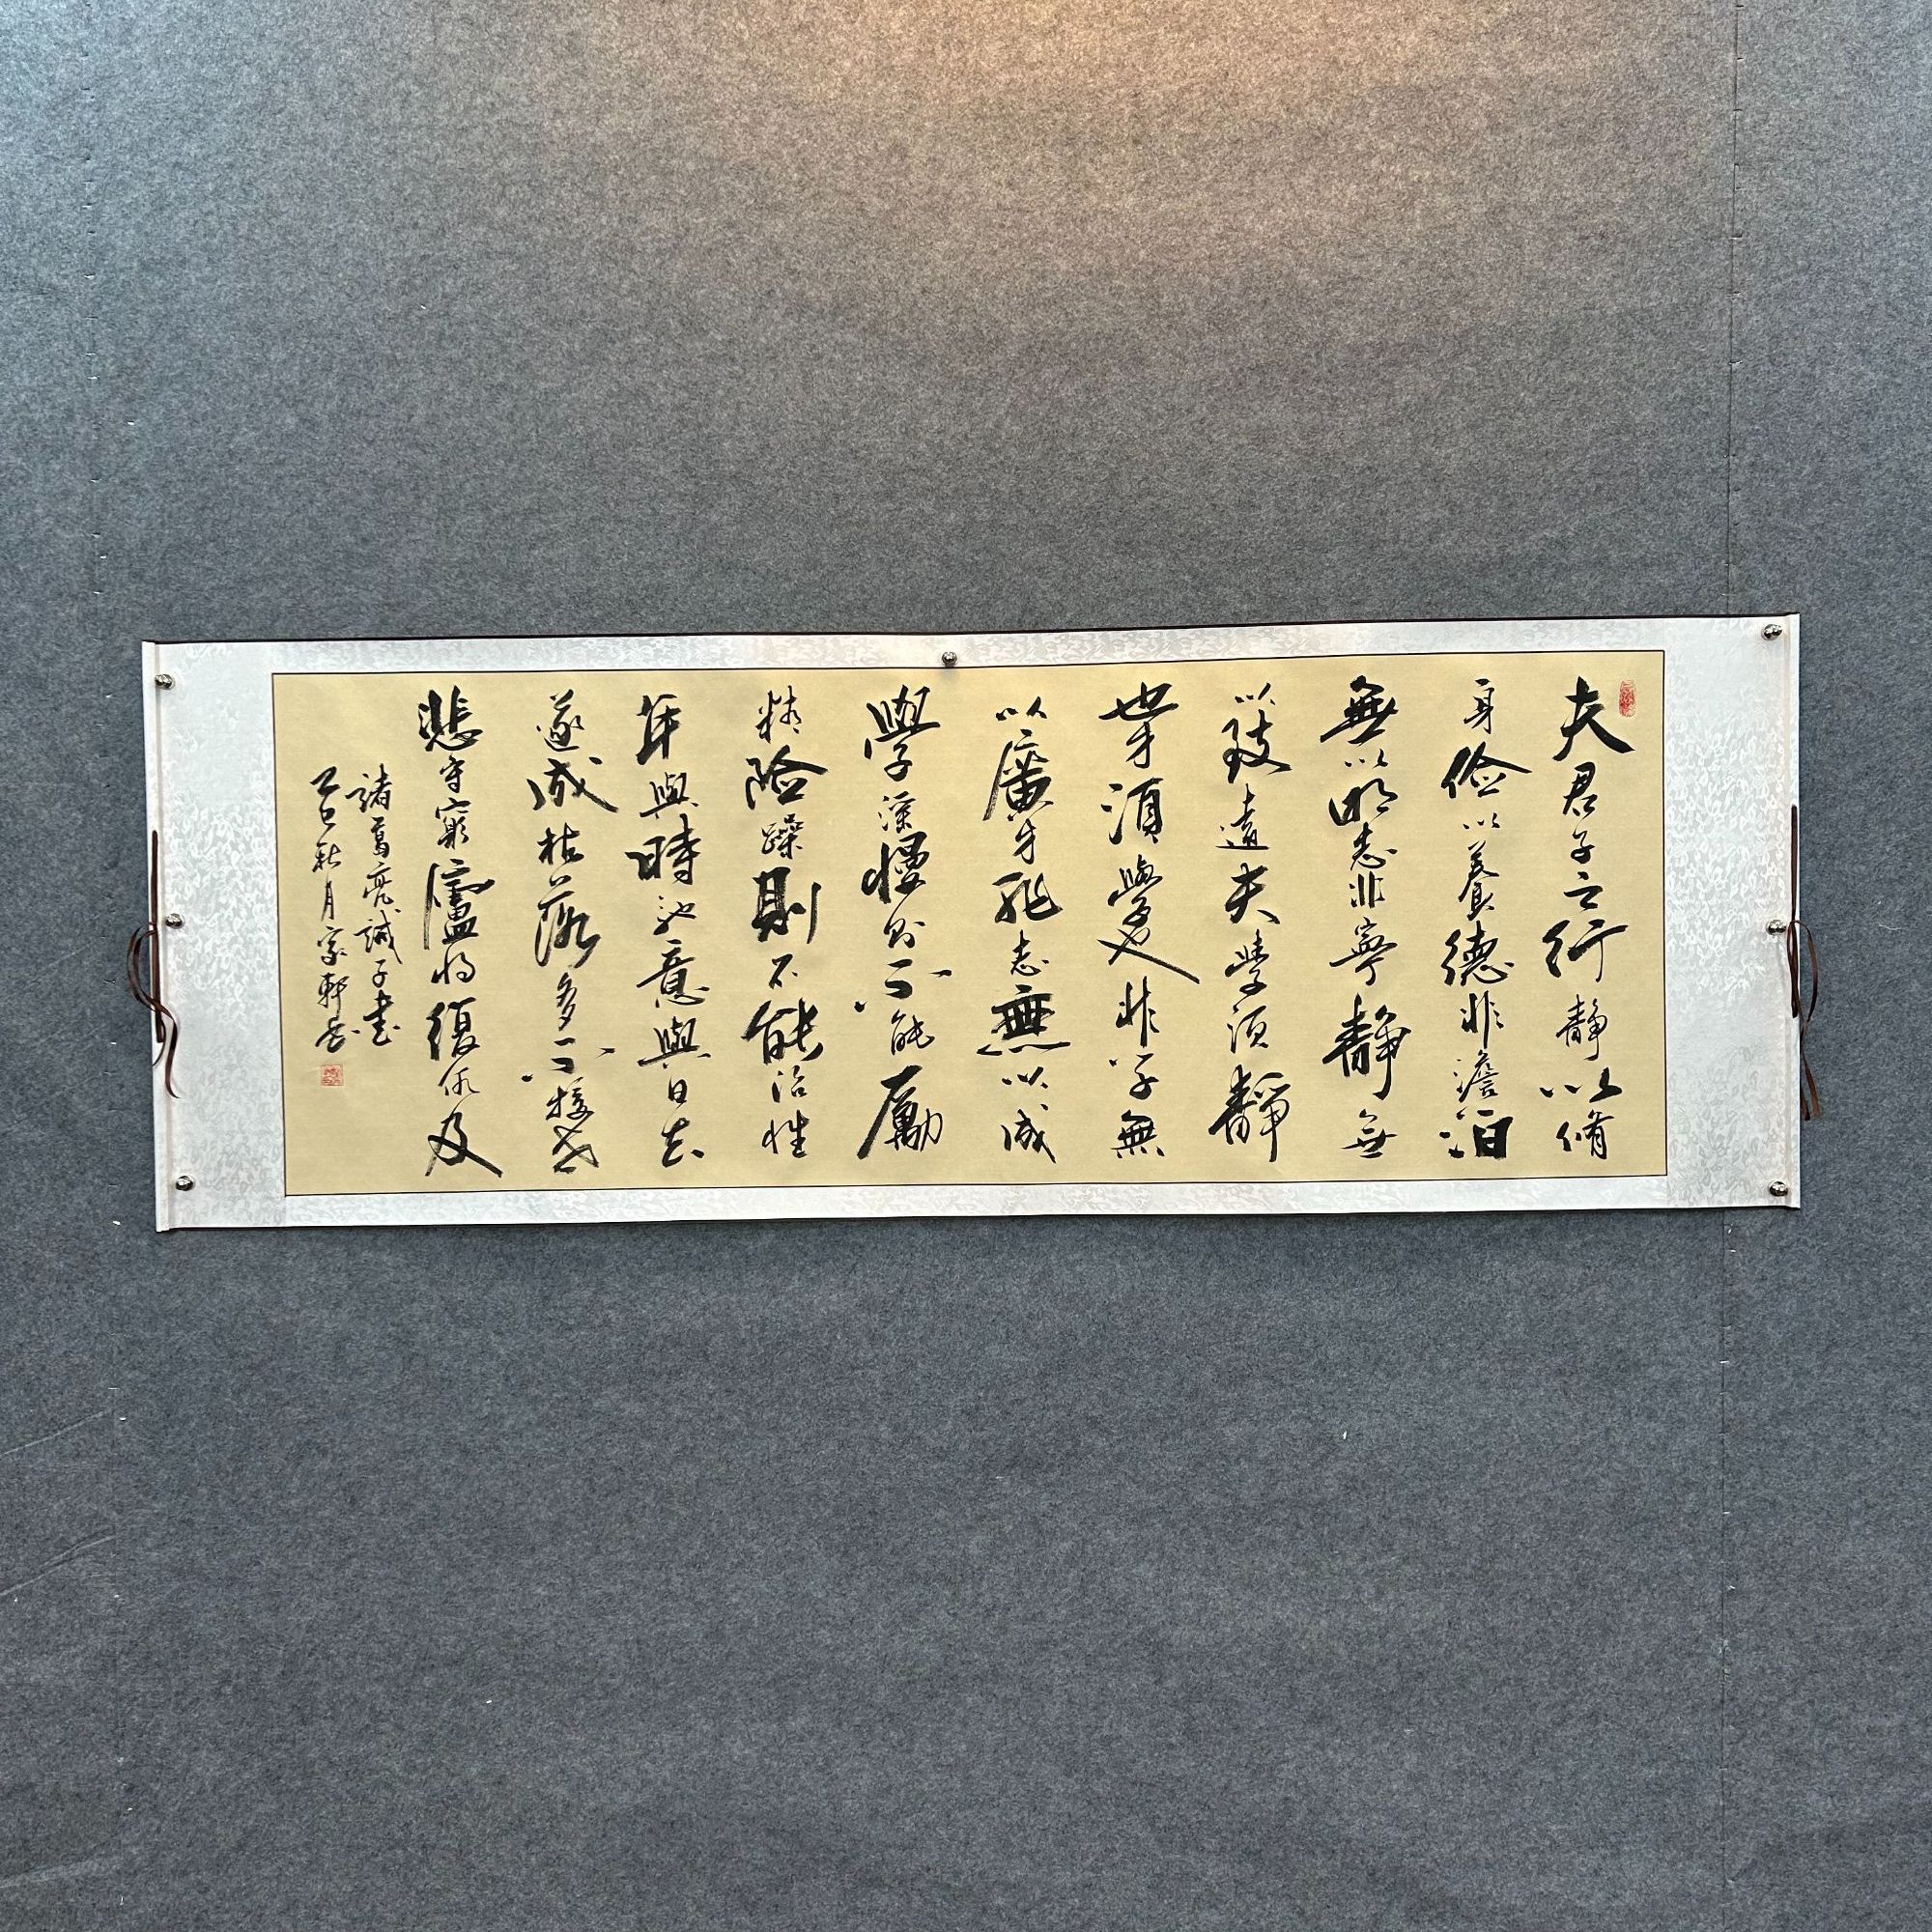 夫君子之行靜以脩
身儉以養德非澹泊
無以明志非寧靜無
以致遠夫學須靜
也才須學也非学無
以廣才非志無以成
學淫慢則不能勵
精險躁則不能治性
年與時馳意與日去
遂成枯落多不接世
悲守窮廬將復何及
諸葛亮誡子書
乙巳秋月家軒書